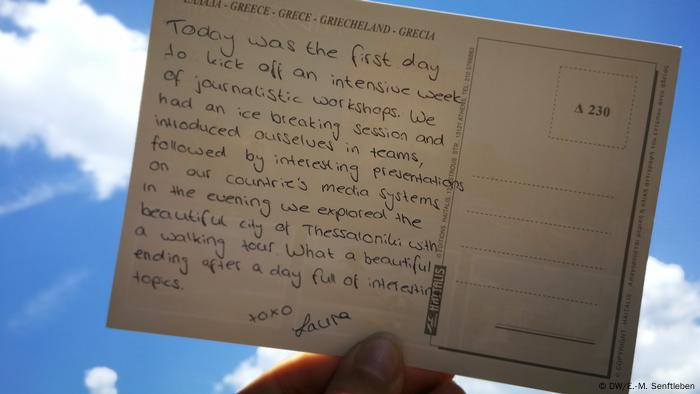 - GREECE - GRECE - GRIECHELAND - GRECIA
Today was the first day
to kick off an intensive week
of journalistic workshops. We
had an ice breaking session and
introduced ourselves in teams,
followed by interesting presentations
on our countrie's media systems
In the evening we explored the
beautiful city of Thessaloniki with
a walking tour. What a beautiful
ending after a day full of interesting
topics.
xoxo
Laura
Δ 230
HAITALIS
© DW/E.-M. Senftleben